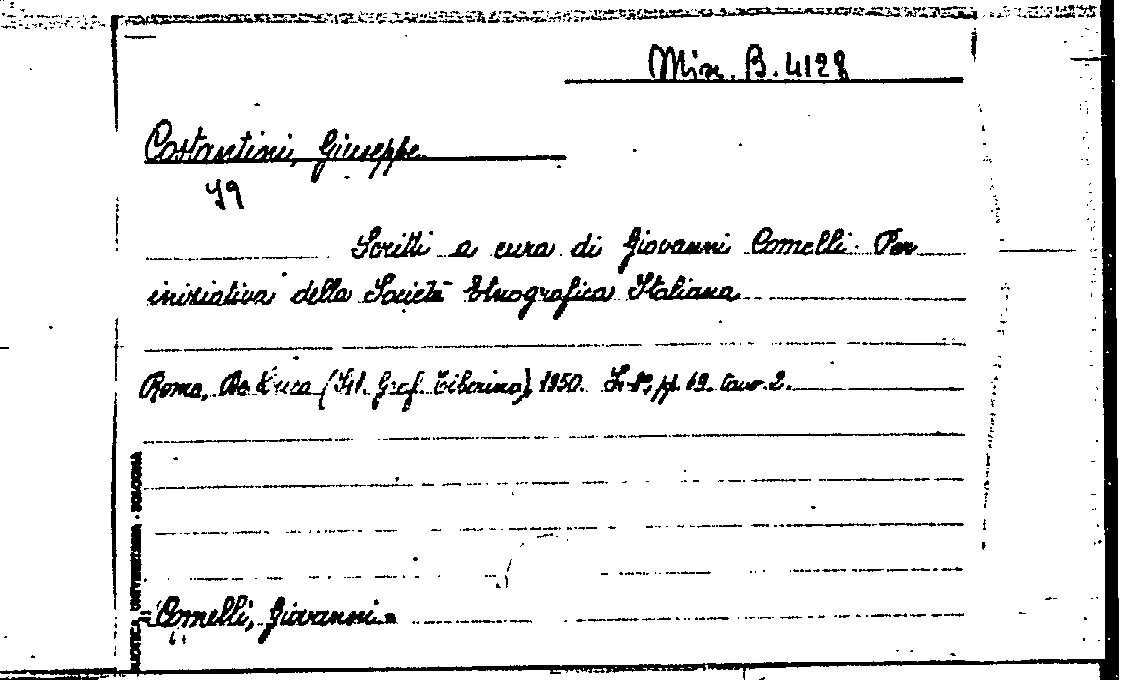 Misc. B. 4128
Costantini, Giuseppe
79
Scritti a cura di Giovanni Comelli. Per
iniziativa della Società Etnografica Italiana.
Roma, De Luca (Ist. Graf. Tiberino), 1950. In-8°, pp. 69. tavv. 2.
UNIVERSITARIA - BOLOGNA
= Comelli, Giovanni =